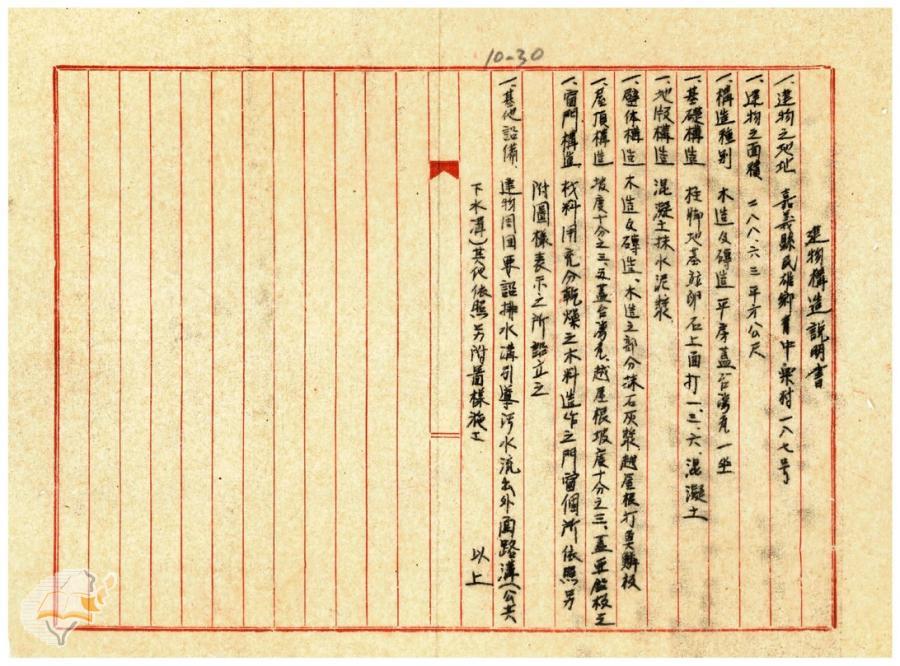 10-30
建物構造說明書
一、建物之地址 嘉義縣民雄鄉菁中寮村一八七号
一、建物之面積 二八八.六三平方公尺
一、構造種別 木造及磚造平房蓋台湾瓦一坐
一、基礎構造 柱脚地基鋪卵石上面打一、三、六、混凝土
一、地版構造 混凝土抹水泥漿
一、壁体構造 木造及磚造、木造之部分抹石灰漿越屋根打魚鱗板
一、屋頂構造 坡度十分之三、五蓋台湾瓦、越屋根坡度十分之三、蓋亜鉛板瓦
一、窗門構造 材料用充分乾燥之木料造作之門窗個所依照另
附圖樣表示之所設立之
一、其他設備、 建物周囲要設排水溝引導污水流出外面路溝(公共
下水溝)其他依照另附圖樣施工 以上